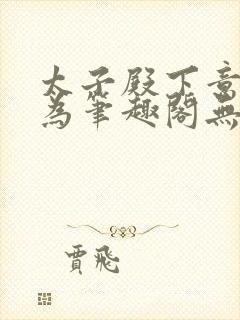 太子殿下意
為筆趣閣無
賈飛